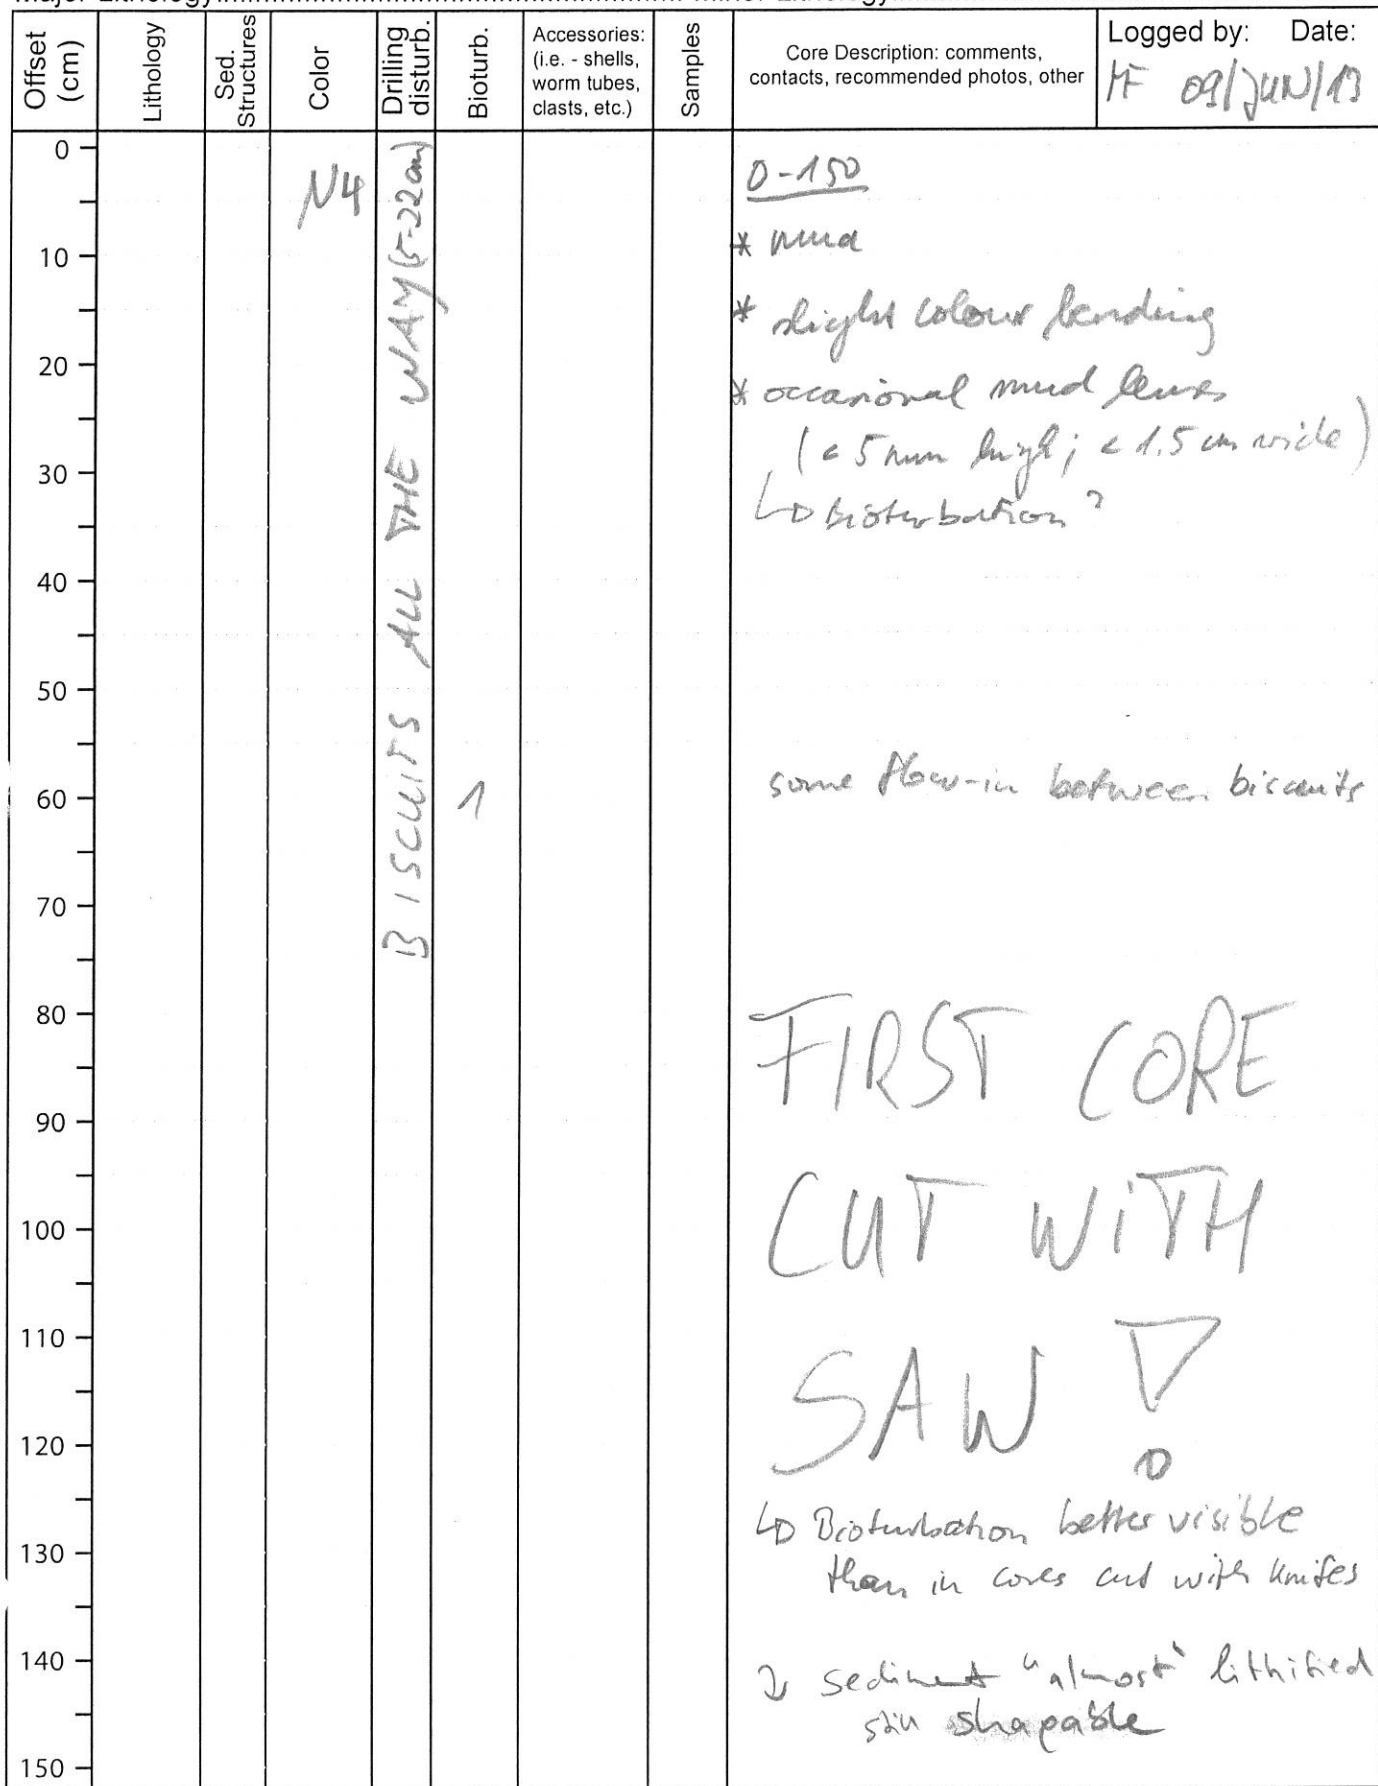 Offset
(cm)
Lithology
Sed.
Structures
Color
Drilling
disturb.
Bioturb.
Accessories:
(i.e. - shells,
worm tubes,
clasts, etc.)
Samples
Core Description: comments,
contacts, recommended photos, other
Logged by: Date:
09/JUN/13
0
10
20
30
40
50
60
70
80
90
100
110
120
130
140
150
N4
BISCUITS ALL THE WAY (5-22cm)
1
0-150
* mud
* slight colour banding
* occasional mud lenses
(< 5 mm high; < 1.5 cm wide)
↳ Bioturbation?
some flow-in between biscuits
FIRST CORE
CUT WiTH
SAW !
↳ Bioturbation better visible
than in cores cut with knifes
sediment "almost" lithified
still shapable